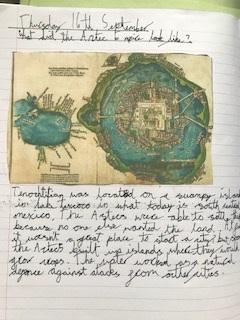 Thursday 16th September
What did the Aztec look like?
Tenochtitlan was located on a swampy island
in lake texcoco in what today is south central
mexico. The Aztecs were able to settle
because no one else wanted the land. At
it wasn't a great place to start a city but soon
the Aztecs built up islands where they could
grow crops. The water worked as a natural
defence against attacks from other cities.